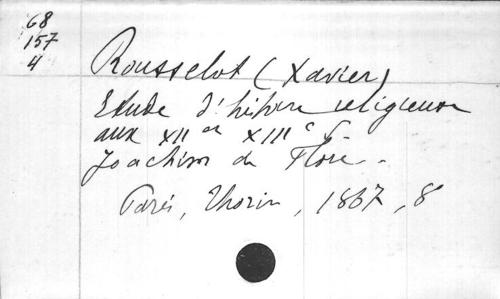 68
157
4
Rousselot (Xavier)
Etude d'histoire religieuse
aux XII et XIIIe s.
Joachim de Flore.
Paris, Thorin, 1867, 8